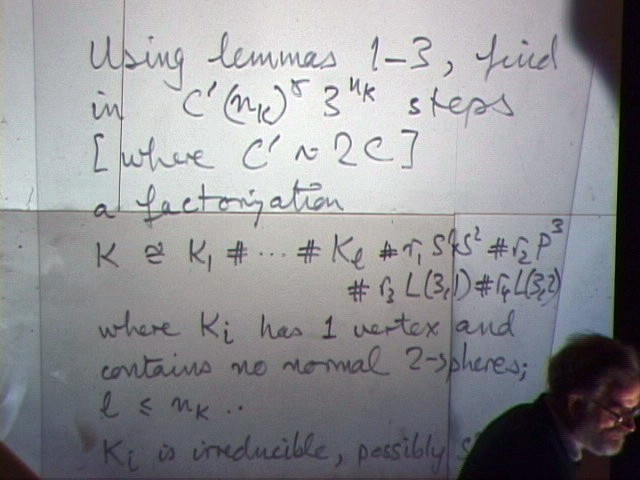 Using lemmas 1–3, find
in C'(n_K)^γ 3^{n_K} steps
[where C' ~ 2C]
a factorization
K ≅ K₁ # ··· # K_ℓ # r₁ S¹×S² # r₂ P³
# r₃ L(3,1) # r₄ L(3,2)
where K_i has 1 vertex and
contains no normal 2-spheres;
ℓ ≤ n_K ..
K_i is irreducible, possibly